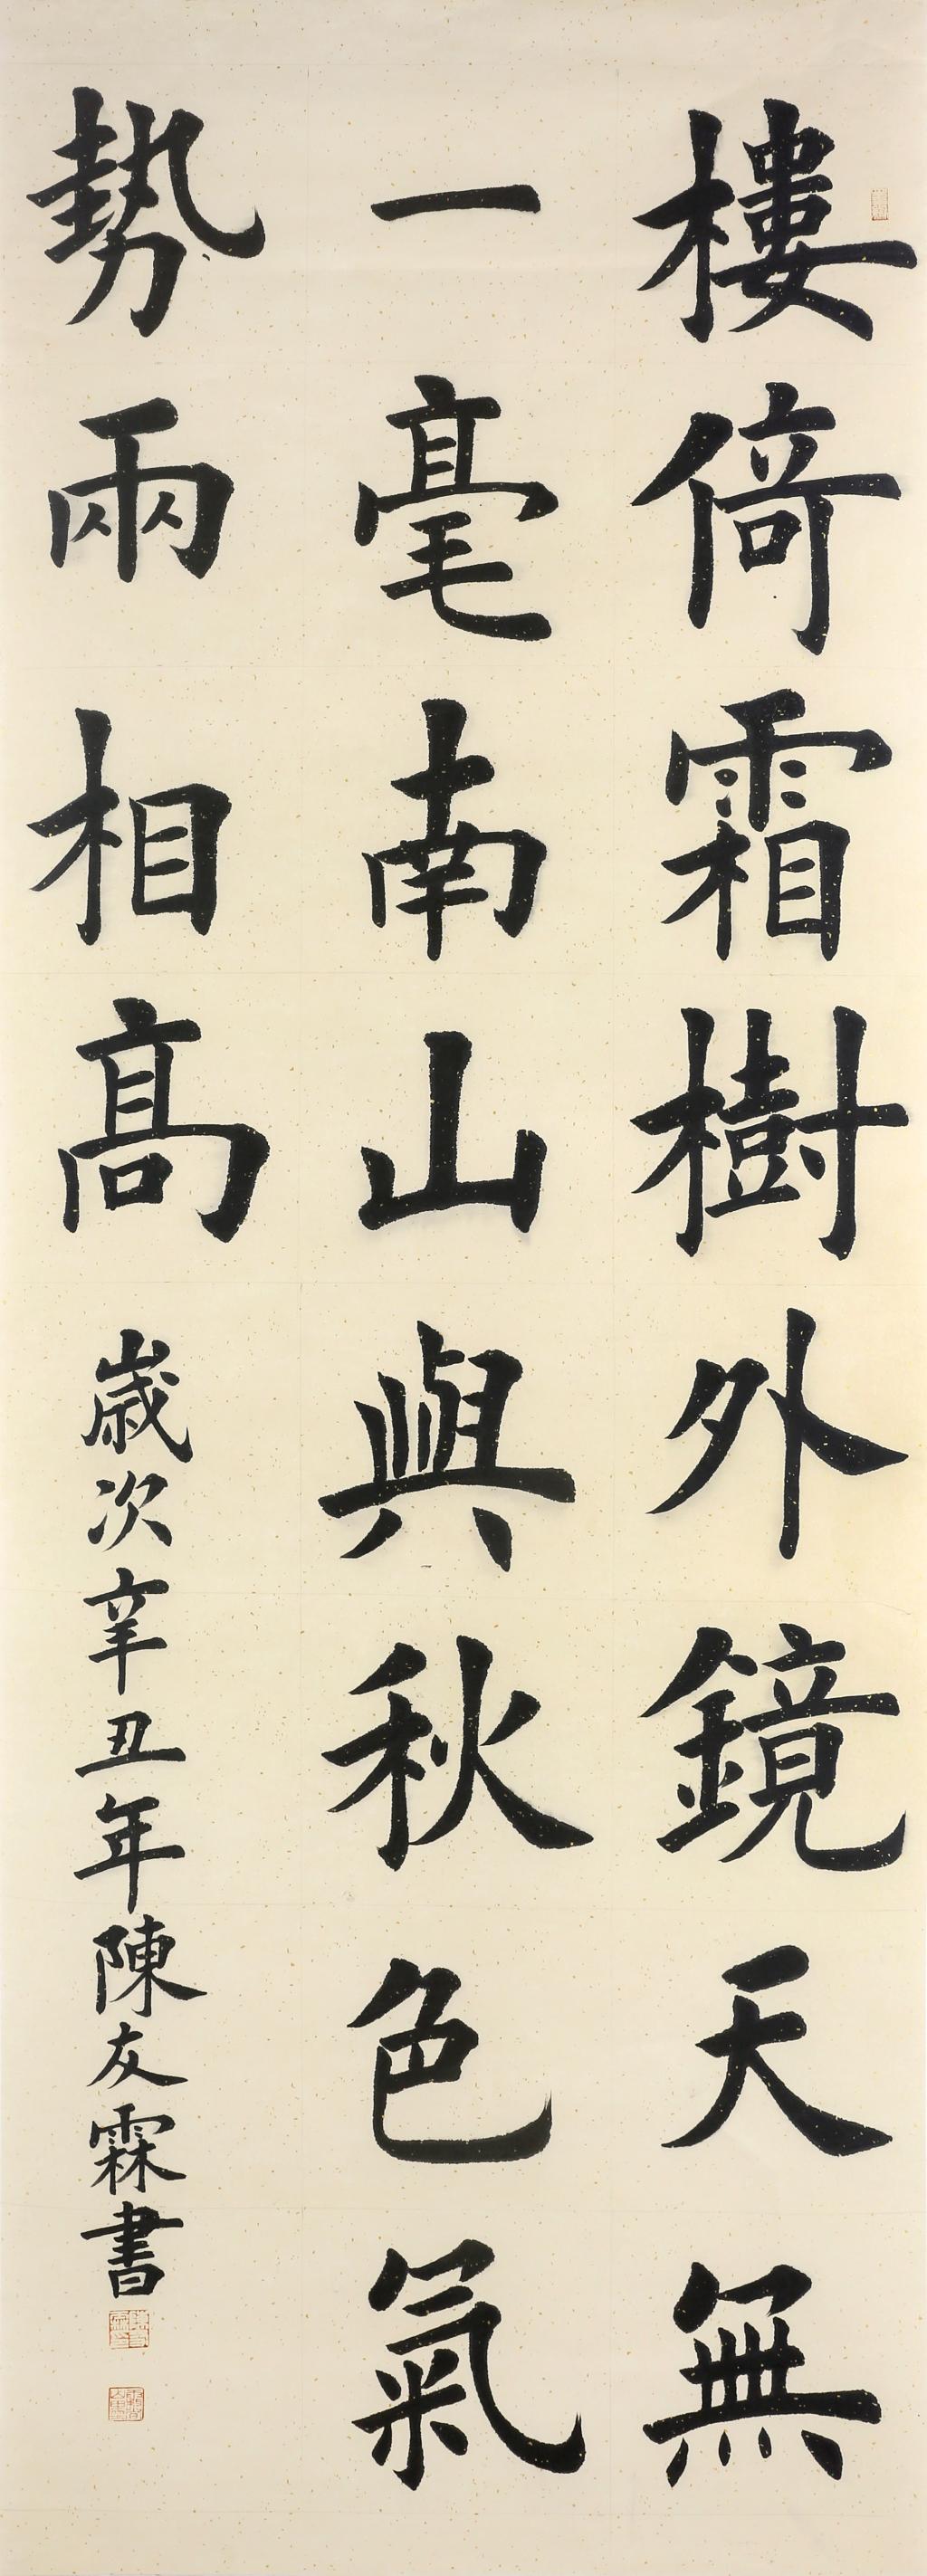 樓倚霜樹外鏡天無
一毫南山與秋色氣
勢兩相高
歲次辛丑年陳友霖書